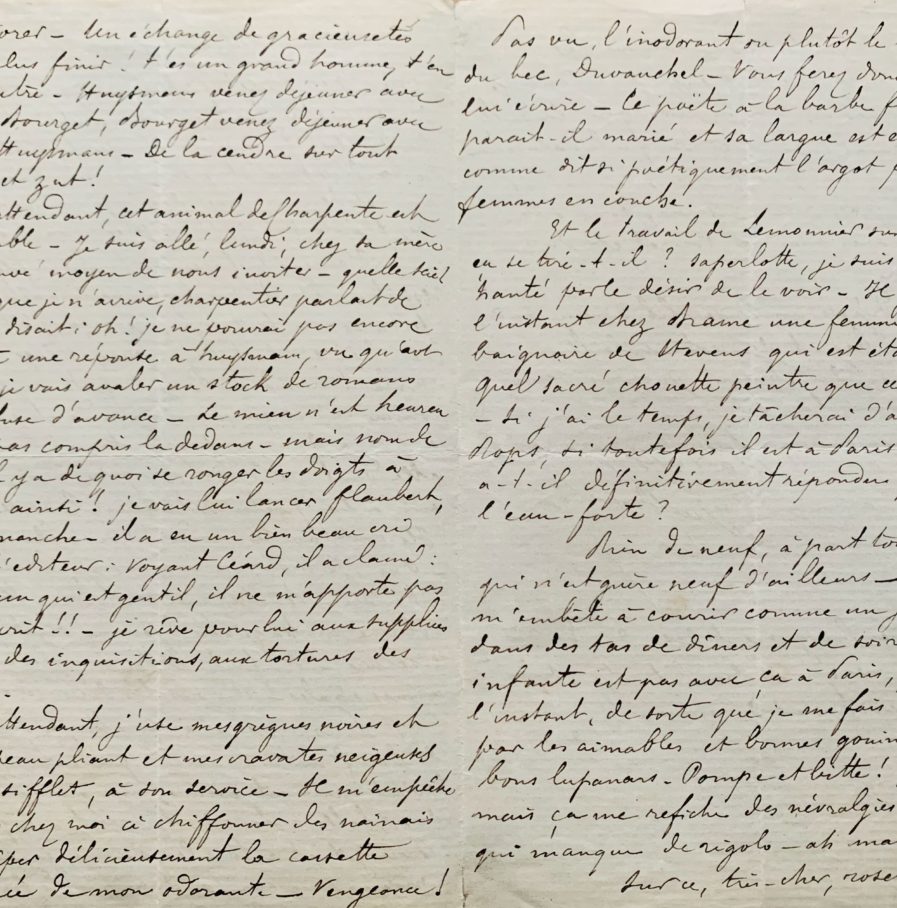 orer – Un échange de gracieusetés
plus finir ! t'es un grand homme, t'en
utre – Huysmans venez déjeuner avec
Bourget, Bourget venez déjeuner avec
Huysmans – De la cendre sur tout
et zut !
attendant, cet animal de Charpentier est
able – Je suis allé, lundi, chez sa mère
uvé moyen de nous inviter – quelle
que je n'arrive, charpentier parlait de
disait : oh ! je ne pourrai pas encore
une réponse à huysmans, vu qu'avt
je vais avaler un stock de romans
d'avance – Le mien n'est heureu
pas compris la dedans – mais nom de
l y a de quoi se ronger les doigts à
ainsi ! je vais lui lancer flaubert,
manche – il a eu un bien beau cri
'editeur : Voyant Céard, il a clamé :
un qui est gentil, il ne m'apporte pas
crit !! – je rêve pour lui aux supplices
des inquisitions, aux tortures des
.
attendant, j'use mes grègues noires et
peau pliant et mes cravates neigeuses
sifflet, à son service – Il m'empêche
chez moi à chiffonner des nainais
per délicieusement la cassette
ée de mon odorante – Vengeance !
Pas vu, l'inodorant ou plutôt le
du bec, Duvauchel – Vous ferez donc
lui écrire – Ce poëte à la barbe f
parait-il marié et sa largue est e
comme dit si poétiquement l'argot p
femmes en couche.
Et le travail de Lemonnier sur
en se tire-t-il ? saperlotte, je suis
hanté par le désir de le voir – Il
l'instant chez Brame une femme
baignoire de Stevens qui est éto
Quel sacré chouette peintre que ce
– Si j'ai le temps, je tâcherai d'a
Rops, si toutefois il est à Paris
a-t-il définitivement répondu
l'eau-forte ?
Rien de neuf, à part to
qui n'est guère neuf d'ailleurs –
m'embête à courir comme un
dans des tas de dîners et de soir
infante est pas avec ça à Paris,
l'instant, de sorte que je me fais
par les aimables et bonnes gouin
bons lupanars – Pompe et bitte !
mais ça me refiche des névralgies
qui manque de rigolo – ah ma
sur ce, très-cher, rose